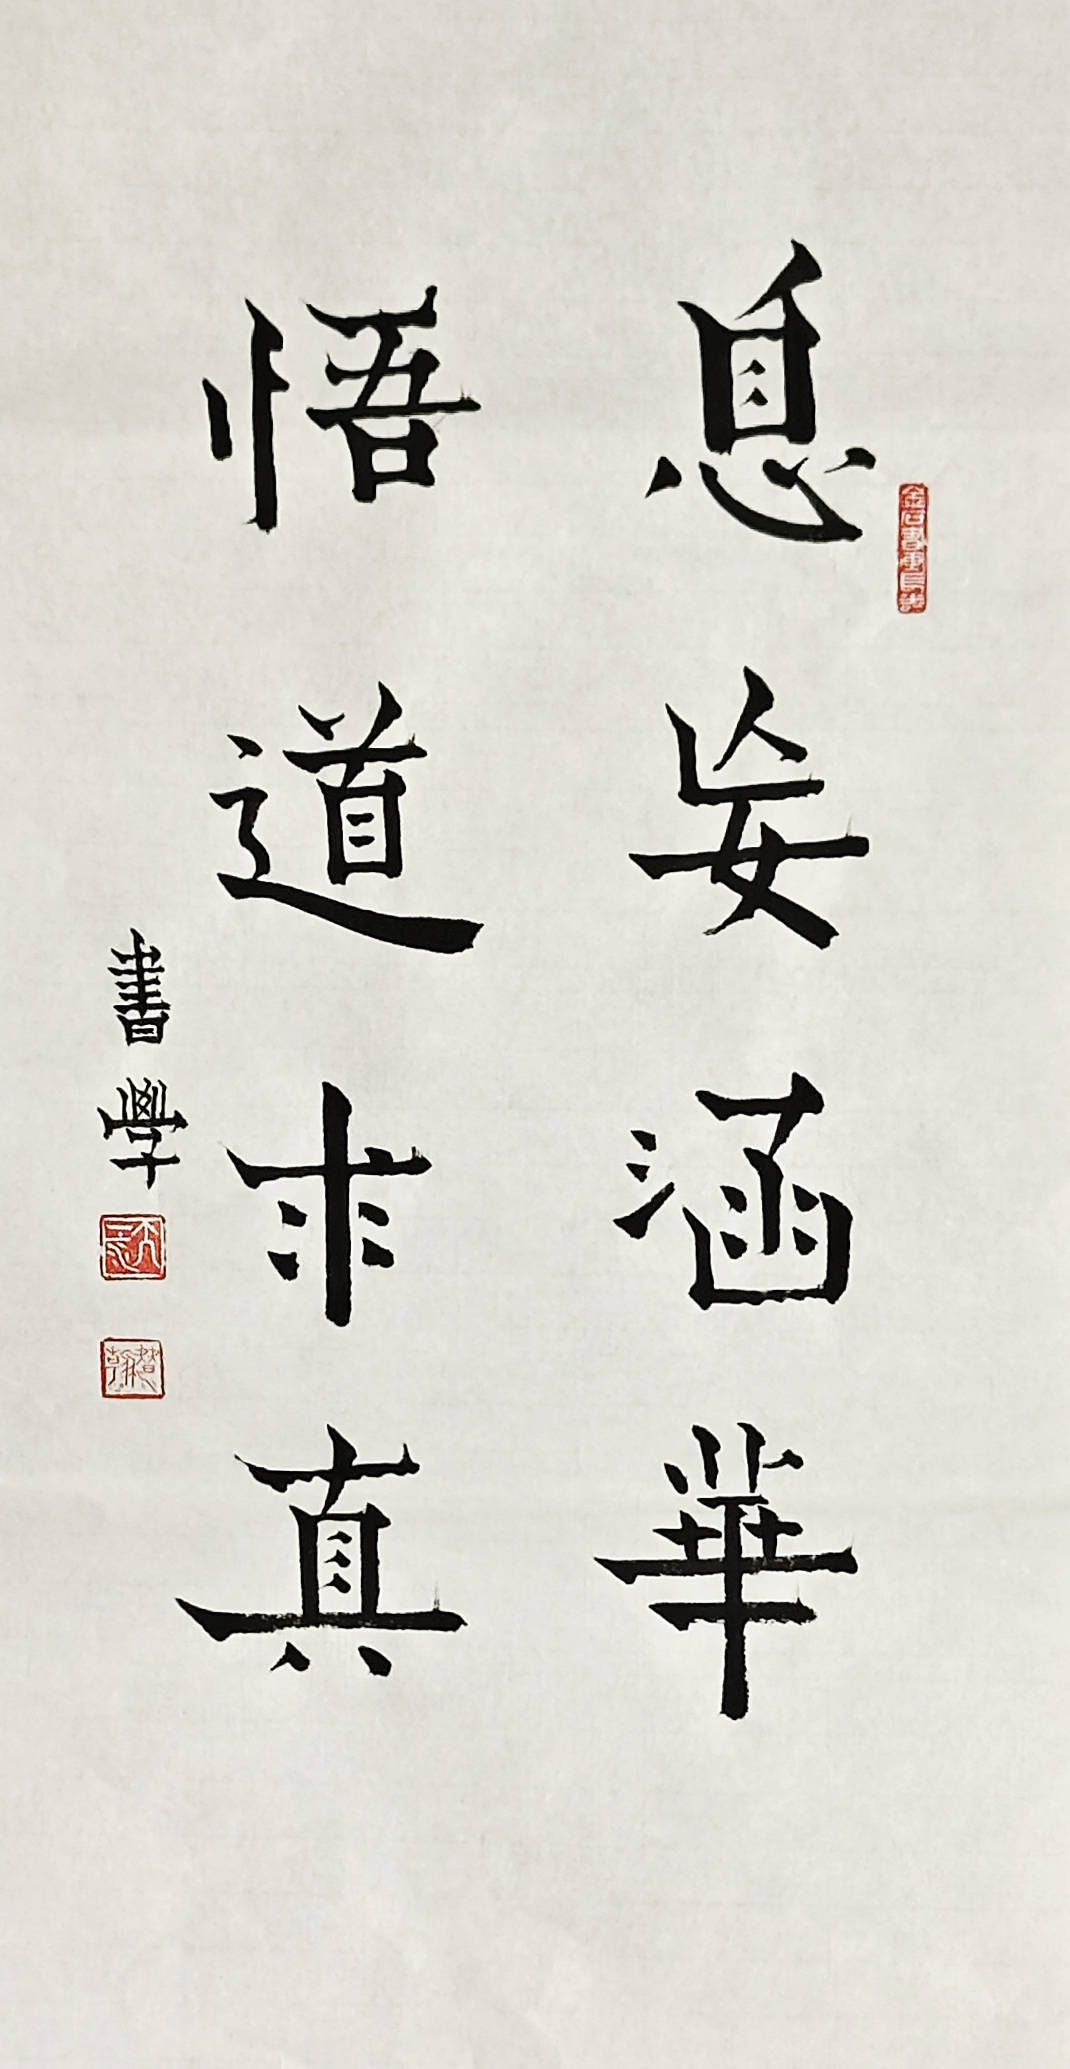 息妄涵華
悟道求真
書學